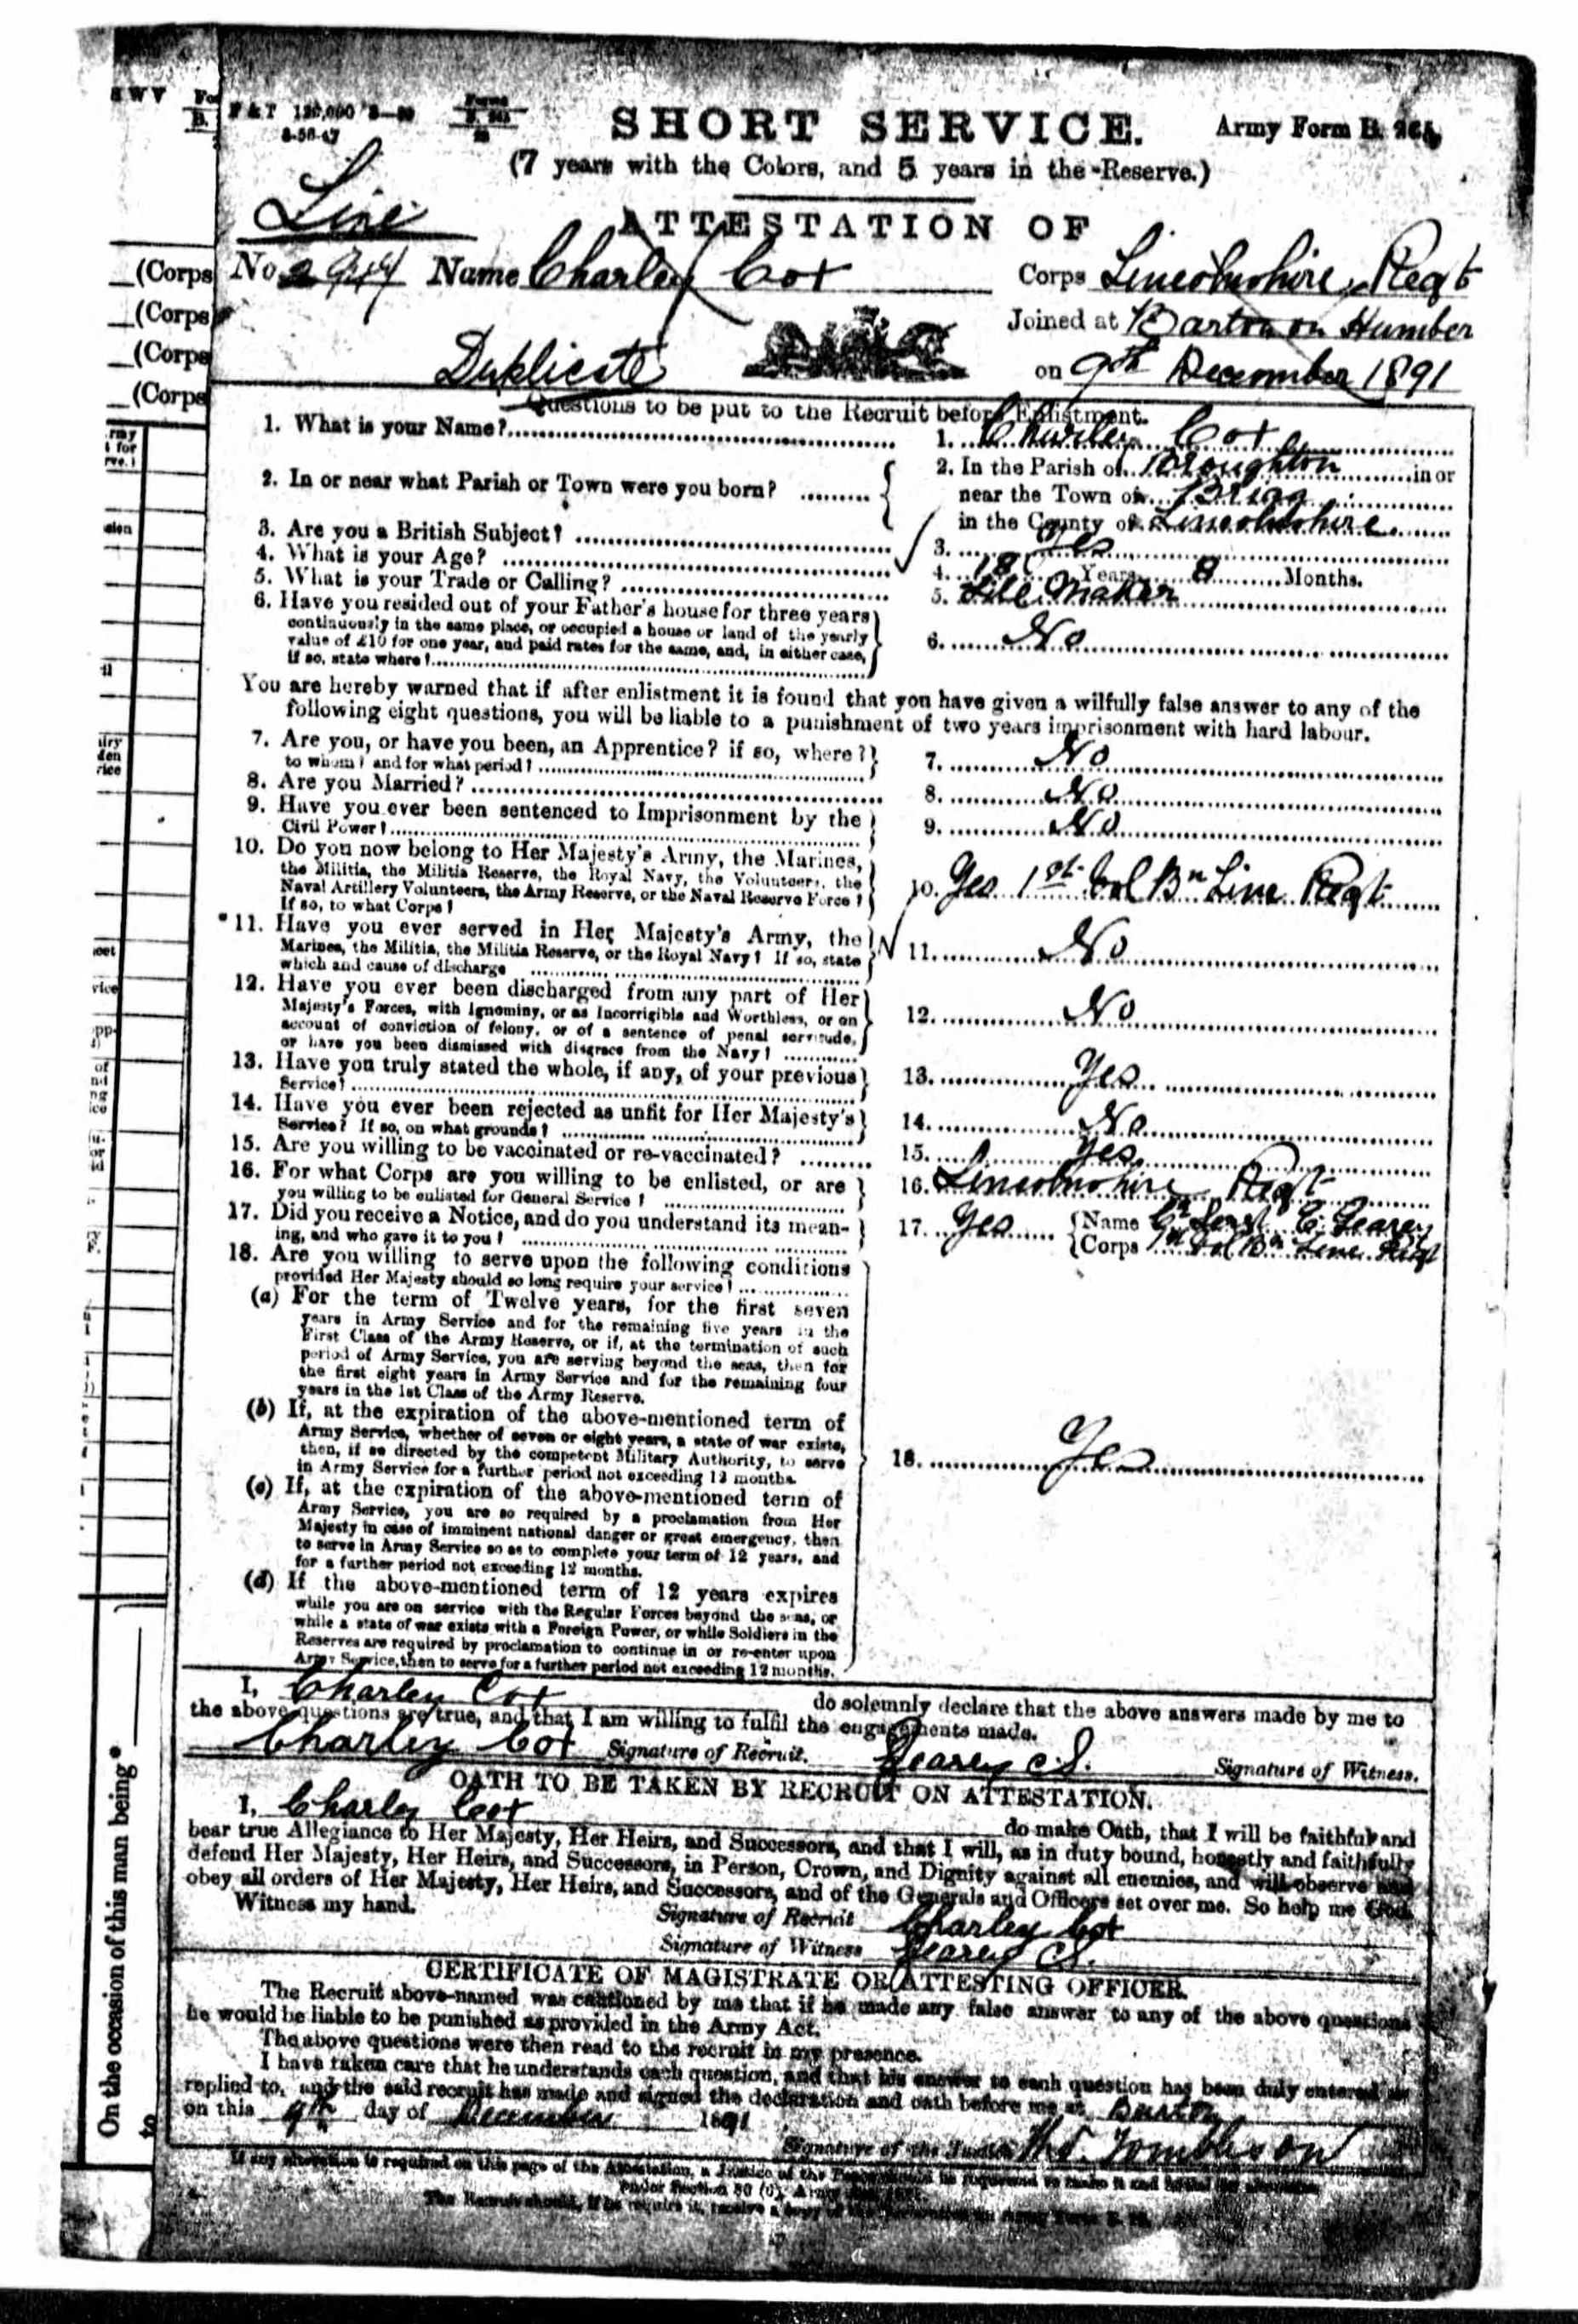 SHORT SERVICE. Army Form B.
(7 years with the Colors, and 5 years in the Reserve.)
Line
ATTESTATION OF
No Name Charley Cox Corps Lincolnshire Regt
Joined at Barton on Humber
Duplicate on 9th December 1891
Questions to be put to the Recruit before Enlistment.
1. What is your Name? 1. Charley Cox
2. In or near what Parish or Town were you born? 2. In the Parish of Broughton in or
near the Town of Brigg
in the County of Lincolnshire
3. Are you a British Subject? 3. Yes
4. What is your Age? 4. 18 Years 8 Months.
5. What is your Trade or Calling? 5. Tile Maker
6. Have you resided out of your Father's house for three years
continuously in the same place, or occupied a house or land of the yearly
value of £10 for one year, and paid rates for the same, and, in either case,
if so, state where? 6. No
You are hereby warned that if after enlistment it is found that you have given a wilfully false answer to any of the
following eight questions, you will be liable to a punishment of two years imprisonment with hard labour.
7. Are you, or have you been, an Apprentice? if so, where?
to whom? and for what period? 7. No
8. Are you Married? 8. No
9. Have you ever been sentenced to Imprisonment by the
Civil Power? 9. No
10. Do you now belong to Her Majesty's Army, the Marines,
the Militia, the Militia Reserve, the Royal Navy, the Volunteers, the
Naval Artillery Volunteers, the Army Reserve, or the Naval Reserve Force?
If so, to what Corps? 10. Yes 1st Vol Bn Linc Regt
*11. Have you ever served in Her Majesty's Army, the
Marines, the Militia, the Militia Reserve, or the Royal Navy? If so, state
which and cause of discharge 11. No
12. Have you ever been discharged from any part of Her
Majesty's Forces, with Ignominy, or as Incorrigible and Worthless, or on
account of conviction of felony, or of a sentence of penal servitude,
or have you been dismissed with disgrace from the Navy? 12. No
13. Have you truly stated the whole, if any, of your previous
Service? 13. Yes
14. Have you ever been rejected as unfit for Her Majesty's
Service? If so, on what grounds? 14. No
15. Are you willing to be vaccinated or re-vaccinated? 15. Yes
16. For what Corps are you willing to be enlisted, or are
you willing to be enlisted for General Service? 16. Lincolnshire Regt
17. Did you receive a Notice, and do you understand its mean-
ing, and who gave it to you? 17. Yes Name
Corps 1st Vol Bn Linc Regt
18. Are you willing to serve upon the following conditions
provided Her Majesty should so long require your service?
(a) For the term of Twelve years, for the first seven
years in Army Service and for the remaining five years in the
First Class of the Army Reserve, or if, at the termination of such
period of Army Service, you are serving beyond the seas, then for
the first eight years in Army Service and for the remaining four
years in the 1st Class of the Army Reserve.
(b) If, at the expiration of the above-mentioned term of
Army Service, whether of seven or eight years, a state of war exists,
then, if so directed by the competent Military Authority, to serve
in Army Service for a further period not exceeding 12 months.
18. Yes
(c) If, at the expiration of the above-mentioned term of
Army Service, you are so required by a proclamation from Her
Majesty in case of imminent national danger or great emergency, then
to serve in Army Service so as to complete your term of 12 years, and
for a further period not exceeding 12 months.
(d) If the above-mentioned term of 12 years expires
while you are on service with the Regular Forces beyond the seas, or
while a state of war exists with a Foreign Power, or while Soldiers in the
Reserves are required by proclamation to continue in or re-enter upon
Army Service, then to serve for a further period not exceeding 12 months.
I, Charley Cox do solemnly declare that the above answers made by me to
the above questions are true, and that I am willing to fulfil the engagements made.
Charley Cox Signature of Recruit. Signature of Witness.
OATH TO BE TAKEN BY RECRUIT ON ATTESTATION.
I, Charley Cox do make Oath, that I will be faithful and
bear true Allegiance to Her Majesty, Her Heirs, and Successors, and that I will, as in duty bound, honestly and faithfully
defend Her Majesty, Her Heirs, and Successors, in Person, Crown, and Dignity against all enemies, and will observe and
obey all orders of Her Majesty, Her Heirs, and Successors, and of the Generals and Officers set over me. So help me God.
Witness my hand. Signature of Recruit Charley Cox
Signature of Witness
CERTIFICATE OF MAGISTRATE OR ATTESTING OFFICER.
The Recruit above-named was cautioned by me that if he made any false answer to any of the above questions
he would be liable to be punished as provided in the Army Act.
The above questions were then read to the recruit in my presence.
I have taken care that he understands each question, and that his answer to each question has been duly entered as
replied to, and the said recruit has made and signed the declaration and oath before me at Barton
on this 9th day of December 1891
Signature of the Justice
On the occasion of this man being *